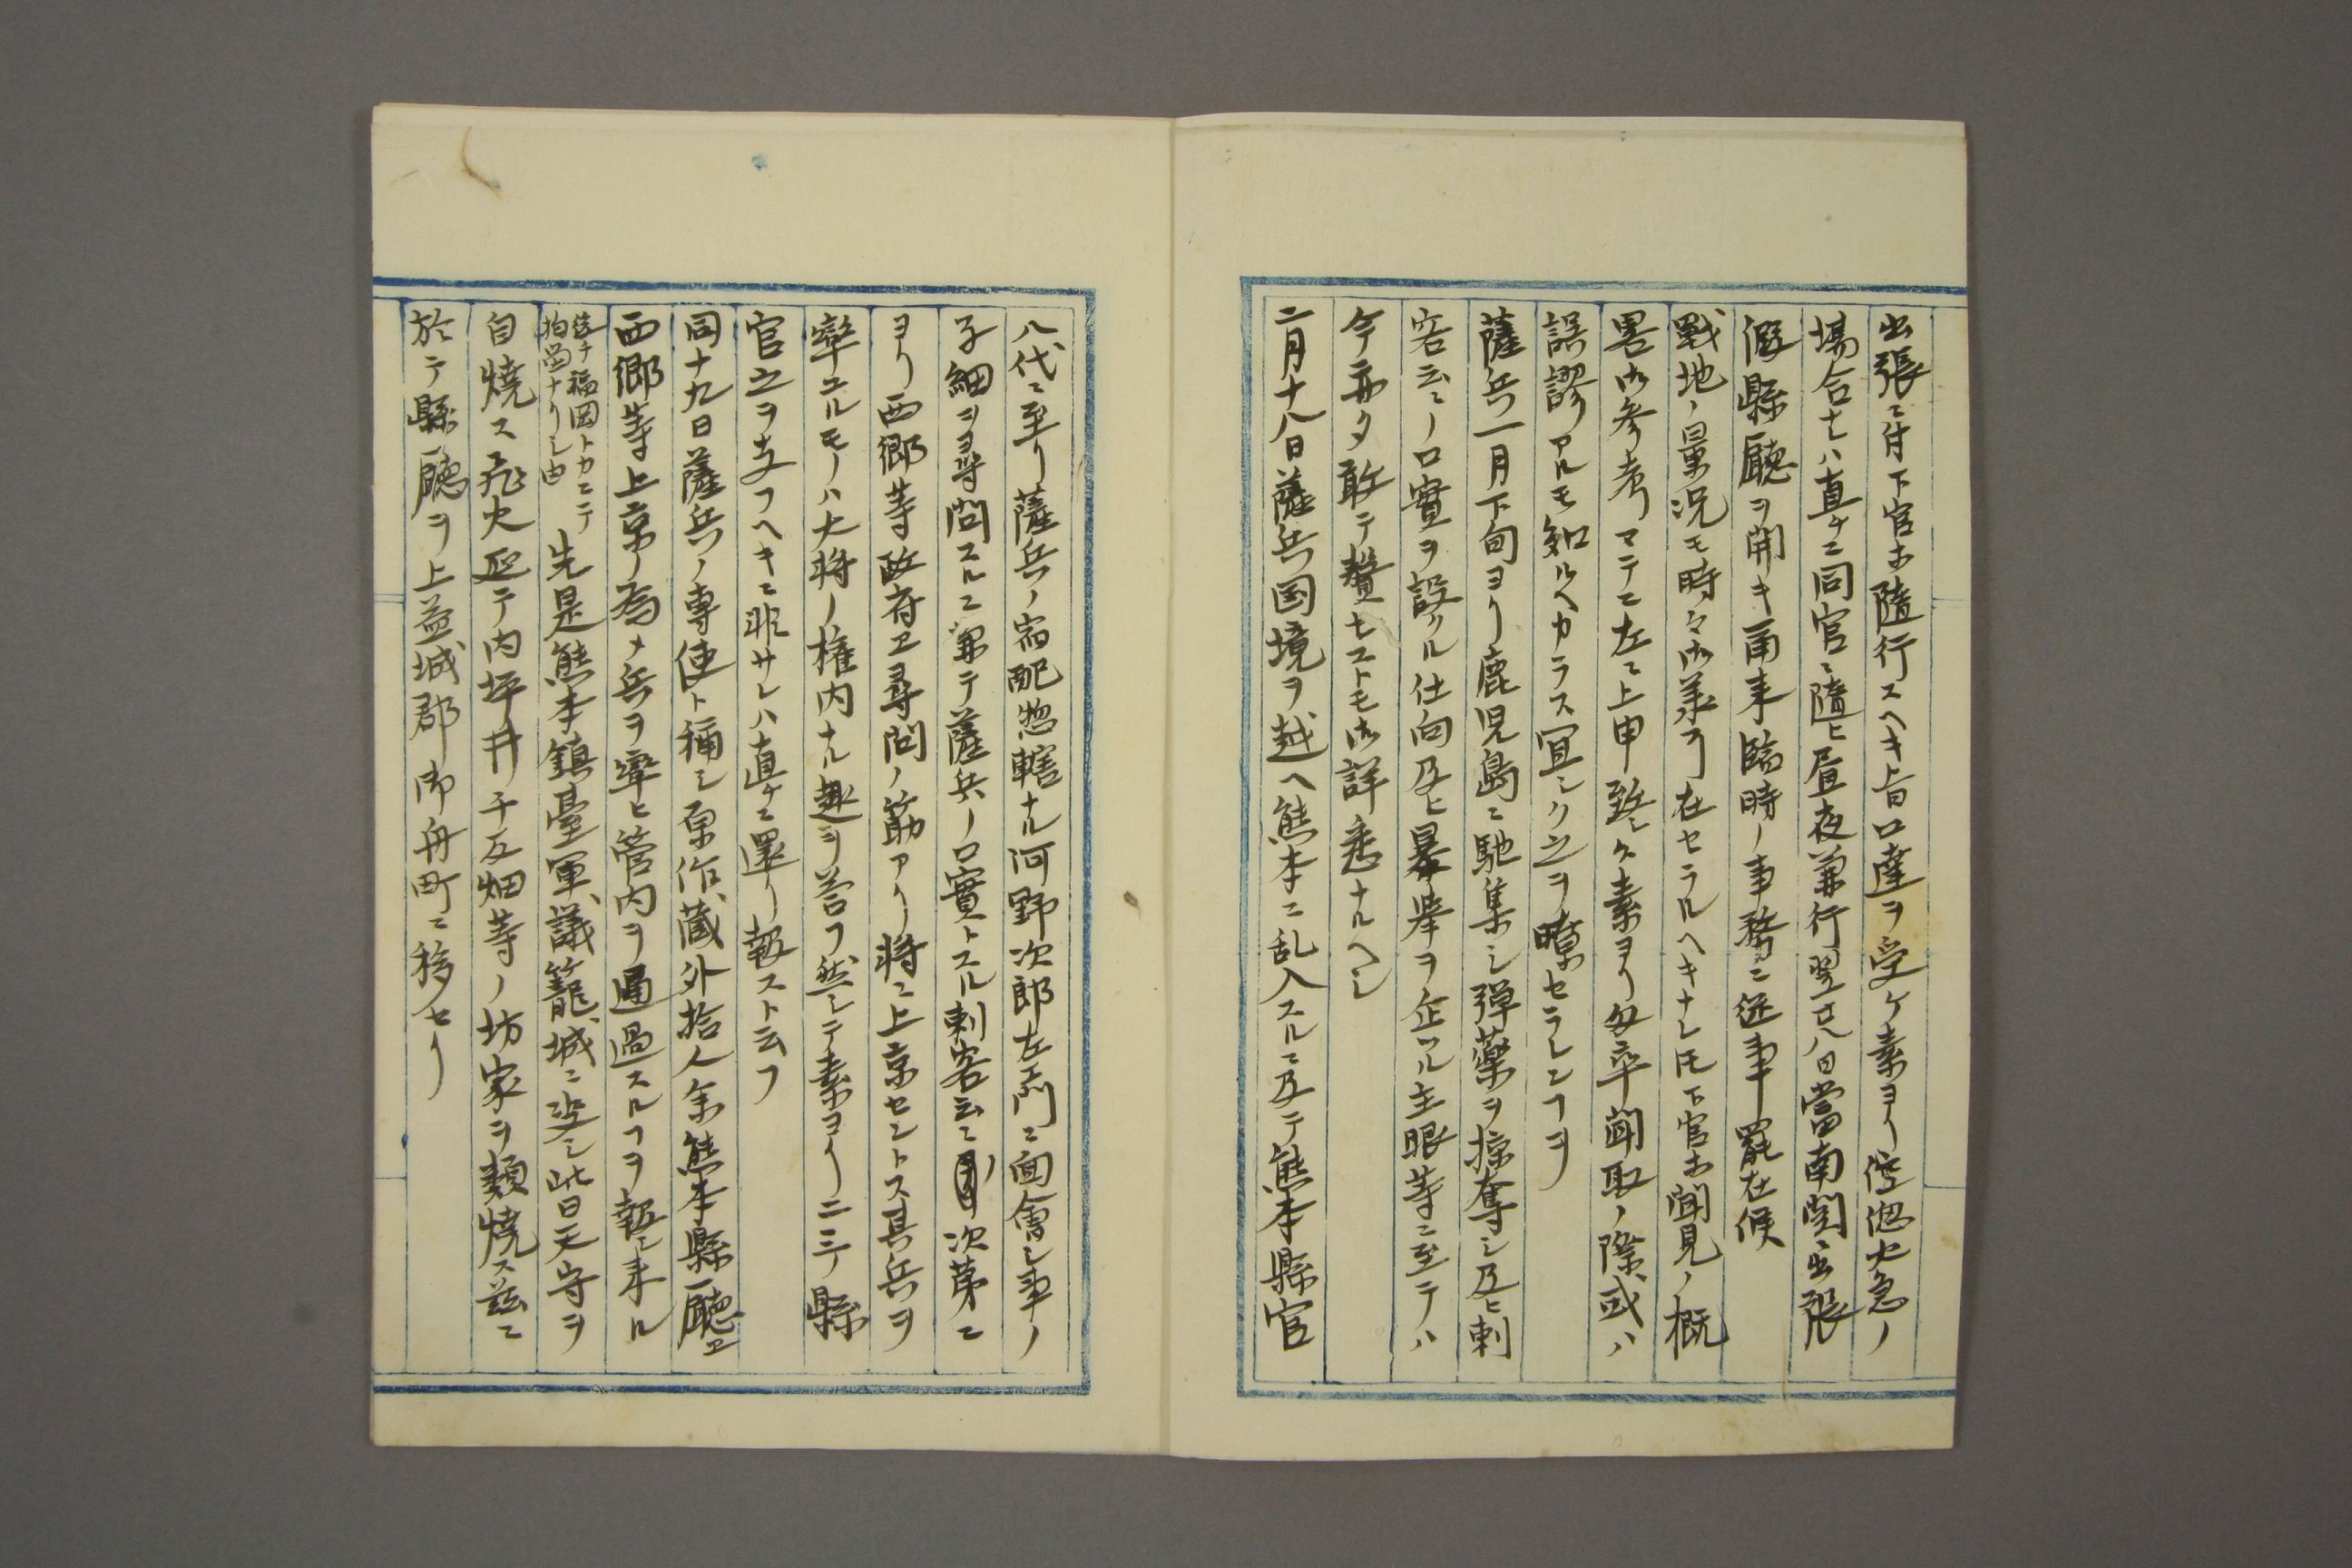 出張ニ付下官ホ随行スヘキ旨口達ヲ受ケ素ヨリ倥偬火急ノ
場合ナレハ直チニ同官ニ随ヒ昼夜兼行翌廿八日當南関ニ出張
假縣廳ヲ開キ爾来臨時ノ事務ニ従事罷在候
戰地ノ景況モ時々御承了在セラルヘキナレ𪜈下官ホ聞見ノ概
畧御参考マテニ左ニ上申致シ候素ヨリ匆卒聞取ノ際或ハ
誤謬アルモ知ルヘカラス冝シク之ヲ暸セラレンヿヲ
薩兵一月下旬ヨリ鹿児島ニ馳集シ彈藥ヲ掠奪シ及ヒ刺
客云々ノ口實ヲ設クル仕向及ヒ暴挙ヲ企ツル主眼等ニ至テハ
今亦タ敢テ贅セストモ御詳悉ナルヘシ
二月十八日薩兵国境ヲ越ヘ熊本ニ乱入スルニ及テ熊本縣官
八代ニ至リ薩兵ノ宿配惣轄ナル河野次郎左衛門ニ面會シ事ノ
子細ヲ尋問スルニ兼テ薩兵ノ口實トスル刺客云々ノ次第ニ
ヨリ西郷等政府ヱ尋問ノ筋アリ將ニ上京セントス其兵ヲ
率ユルモノハ大將ノ権内ナル趣ヲ荅フ然シテ素ヨリ二三ノ縣
官之ヲ支フヘキニ非サレハ直チニ還リ報スト云フ
同十九日薩兵ノ専使ト稱シ原作蔵外拾人余熊本縣廳ヱ
西郷等上京ノ為メ兵ヲ率ヒ管内ヲ通過スルヿヲ報シ来ル
後チ福岡トカニテ
拘留ナリシ由
先是熊本鎮臺軍議籠城ニ決シ此日天守ヲ
自焼ス飛火延テ内坪井千反畑等ノ坊家ヲ類焼ス茲ニ
於テ縣廳ヲ上益城郡御舟町ニ移セリ